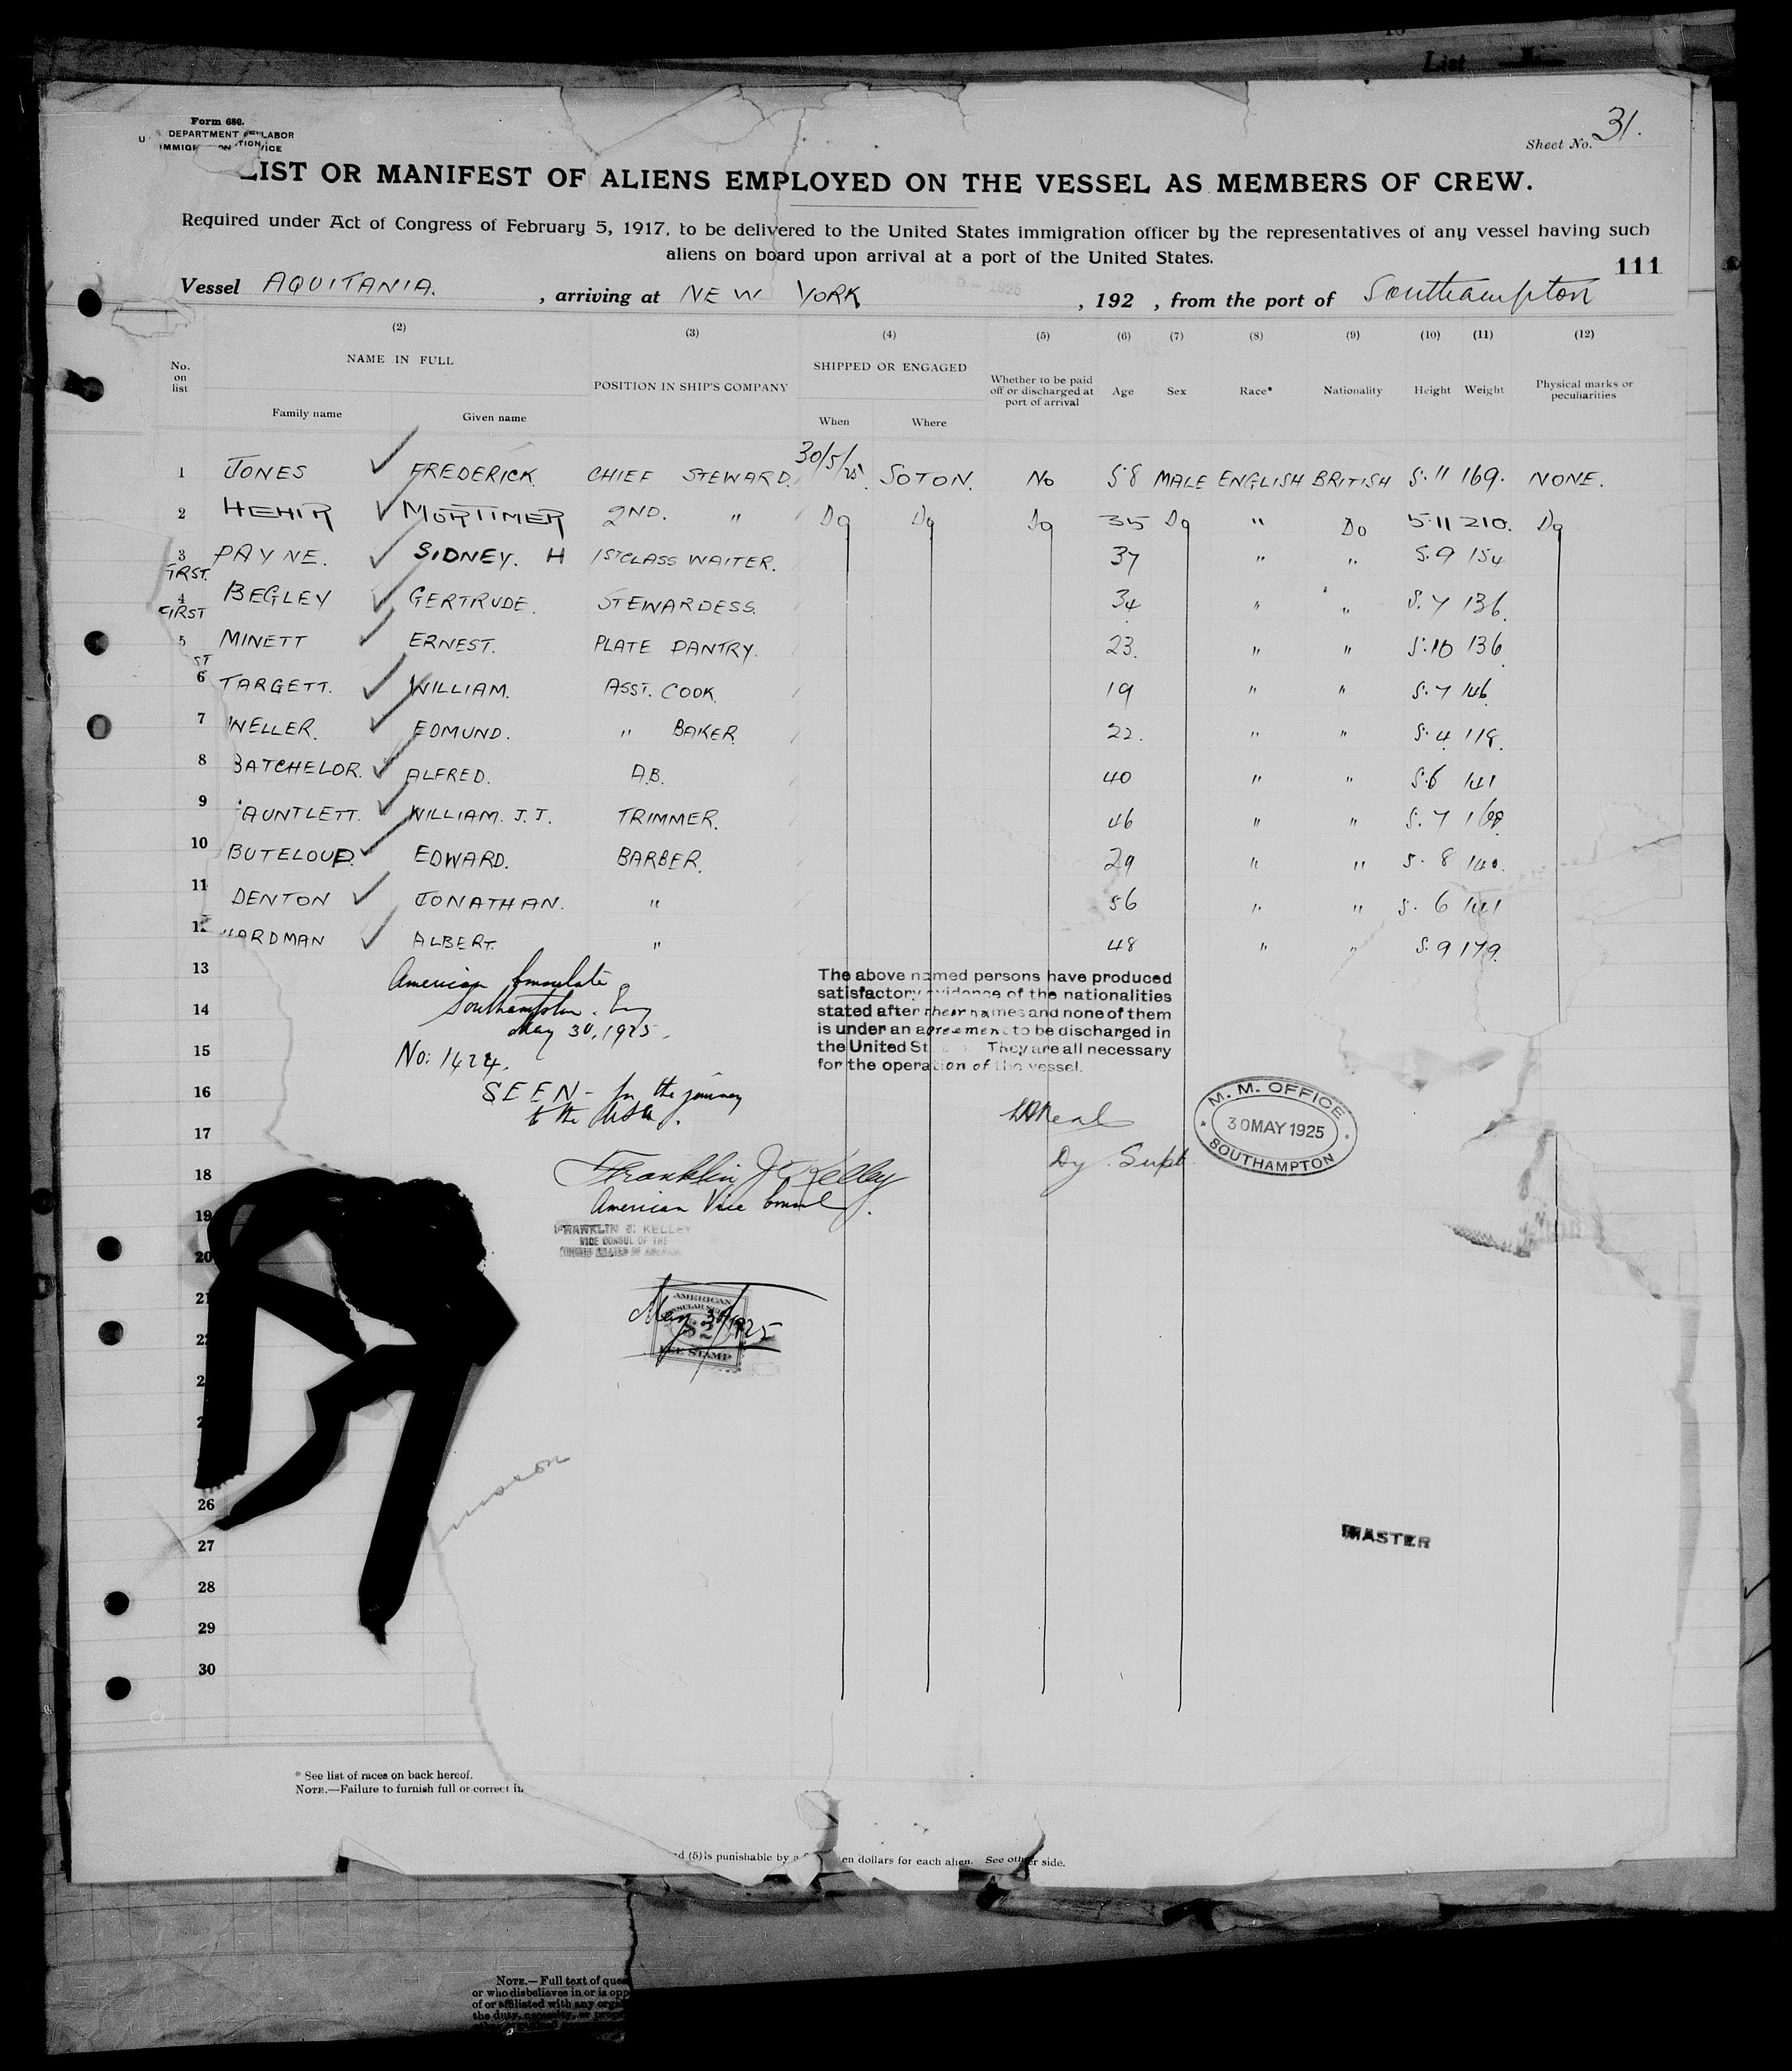 List
Form 680.
DEPARTMENT OF LABOR
Sheet No. 31.
LIST OR MANIFEST OF ALIENS EMPLOYED ON THE VESSEL AS MEMBERS OF CREW.
Required under Act of Congress of February 5, 1917, to be delivered to the United States immigration officer by the representatives of any vessel having such
aliens on board upon arrival at a port of the United States.
111
Vessel AQUITANIA. , arriving at NEW YORK , 192 , from the port of Southampton
(2) (3) (4) (5) (6) (7) (8) (9) (10) (11) (12)
No. on list NAME IN FULL Family name Given name POSITION IN SHIP'S COMPANY SHIPPED OR ENGAGED When Where Whether to be paid off or discharged at port of arrival Age Sex Race* Nationality Height Weight Physical marks or peculiarities
1 JONES FREDERICK. CHIEF STEWARD. 30/5/25. SOTON. No 58 MALE ENGLISH BRITISH 5.11 169. NONE.
2 HEHIR MORTIMER 2ND. " Do Do Do 35 Do " Do 5.11 210. Do
3 PAYNE. SIDNEY. H 1ST CLASS WAITER. 37 " " 5.9 154
FIRST
4 BEGLEY GERTRUDE. STEWARDESS. 34 " " 5.7 136.
FIRST
5 MINETT ERNEST. PLATE PANTRY. 23. " " 5.10 136
ST
6 TARGETT. WILLIAM. ASST. COOK. 19 " " 5.7 146
7 WELLER. EDMUND. " BAKER. 22. " " 5.4 118.
8 BATCHELOR. ALFRED. A.B. 40 " " 5.6 141
9 AUNTLETT. WILLIAM. J.J. TRIMMER. 46 " " 5.7
10 BUTELOUP. EDWARD. BARBER. 29 " " 5.8 140.
11 DENTON JONATHAN. " 56 " " 5.6 141
12 ARDMAN ALBERT. " 48 " " 5.9 179.
13
14
15
16
17
18
19
20
21
26
27
28
29
30
American Consulate
Southampton. Eng
May 30, 1925.
No: 1424.
SEEN - for the journey
to the USA.
Franklin J. Kelley
American Vice Consul.
FRANKLIN J. KELLEY
VICE CONSUL OF THE
UNITED STATES OF AMERICA
AMERICAN
CONSULAR SERVICE
$2
FEE STAMP
May 30/1925
The above named persons have produced
satisfactory evidence of the nationalities
stated after their names and none of them
is under an agreement to be discharged in
the United St They are all necessary
for the operation of the vessel.
Dy. Supt.
M. M. OFFICE
30 MAY 1925
SOUTHAMPTON
MASTER
* See list of races on back hereof.
NOTE.—Failure to furnish full or correct
(5) is punishable by a en dollars for each alien. See other side.
NOTE.—Full text of
or who disbelieves in or is opp
of or affiliated with any